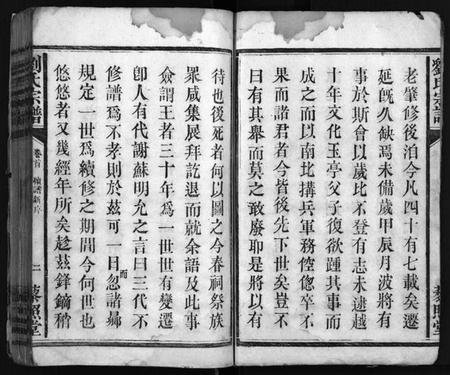 劉氏宗譜
老肇修後泊今凡四十有七載矣遷
延既久缺焉未備歲甲辰月波將有
事於斯會以歲比不登有志未逮越
十年文化玉亭父子復欲踵其事而
成之而以南北搆兵軍務倥傯卒不
果而諸君者今皆後先下世矣豈不
曰有其舉而莫之敢廢耶是將以有
藜照堂
待也後死者何以圖之今春祠祭族
眾咸集展拜訖退而就余語及此事
僉謂王者三十年為一世世有變遷
卽人有代謝蘇明允之言曰三代不
修譜為不孝則於茲可一日忽諸歸
而
規定一世為續修之期間今何世也
悠悠者又幾經年所矣趁茲鋒鏑稍
劉氏宗譜
卷首
二
藜照堂